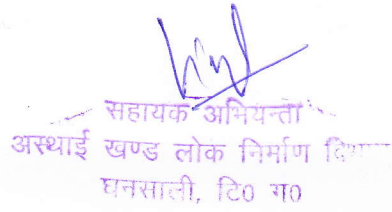 सहायक अभियन्ता
अस्थाई खण्ड लोक निर्माण
घनसाली, टि0 ग0